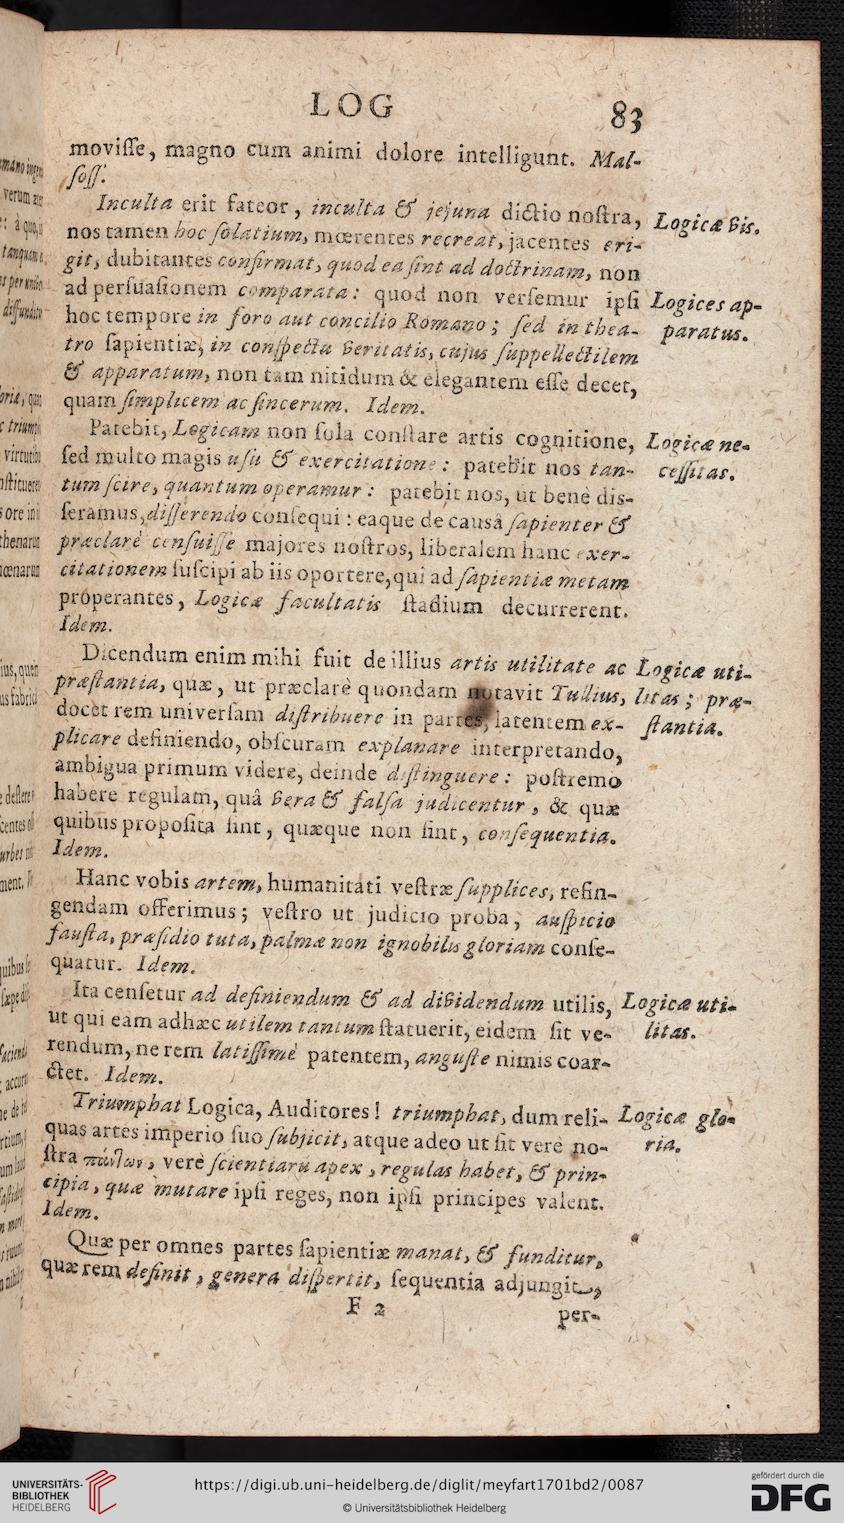 LOG 83
moviſſe, magno cum animi dolore intelligunt. Mal-
foſſ.
Inculta erit fateor, inculta & jejuna dictio noſtra,
Logicæ vis.
nos tamen hoc ſolatium, mœrentes recreat, jacentes eri-
git, dubitantes confirmat, quod ea ſint ad doctrinam, non
ad perſuaſionem comparata: quod non verſemur ipſi
Logices ap-
hoc tempore in foro aut concilio Romano; ſed in thea-
paratus.
tro ſapientiæ, in conſpectu veritatis, cujus ſuppellectilem
& apparatum, non tam nitidum & elegantem eſſe decet,
quam ſimplicem ac ſincerum. Idem.
Patebit, Logicam non ſola conſtare artis cognitione,
Logicæ ne-
ſed multo magis uſu & exercitatione: patebit nos tan-
ceſſitas.
tum ſcire, quantum operamur: patebit nos, ut benè dis-
ſeramus, diſſerendo conſequi: eaque de causâ ſapienter &
præclarè cenſuiſſe majores noſtros, liberalem hanc exer-
citationem ſuſcipi ab iis oportere, qui ad ſapientiæ metam
properantes, Logicæ facultatis ſtadium decurrerent.
Idem.
Dicendum enim mihi fuit de illius artis utilitate ac
Logicæ uti-
præſtantia, quæ, ut præclarè quondam notavit Tullius,
litas; præ-
docet rem univerſam diſtribuere in partes, latentem ex-
ſtantia.
plicare definiendo, obſcuram explanare interpretando,
ambigua primum videre, deinde diſtinguere: poſtremo
habere regulam, quâ vera & falſa judicentur, & quæ
quibus propoſita ſint, quæque non ſint, conſequentia.
Idem.
Hanc vobis artem, humanitati veſtræ ſupplices, refin-
gendam offerimus; veſtro ut judicio proba, auſpicio
fauſta, præſidio tuta, palmæ non ignobilis gloriam conſe-
quatur. Idem.
Ita cenſetur ad definiendum & ad dividendum utilis,
Logicæ uti-
ut qui eam adhæc utilem tantum ſtatuerit, eidem ſit ve-
litas.
rendum, ne rem latiſſimè patentem, anguſte nimis coar-
ctet. Idem.
Triumphat Logica, Auditores! triumphat, dum reli-
Logicæ glo-
quas artes imperio ſuo ſubjicit, atque adeo ut ſit verè no-
ria.
ſtra πάντων, verè ſcientiarū apex, regulas habet, & prin-
cipia, quæ mutare ipſi reges, non ipſi principes valent.
Idem.
Quæ per omnes partes ſapientiæ manat, & funditur,
quæ rem definit, genera diſpertit, ſequentia adjungit,
F 2 per-
UNIVERSITÄTS-
BIBLIOTHEK
HEIDELBERG
https://digi.ub.uni-heidelberg.de/diglit/meyfart1701bd2/0087
© Universitätsbibliothek Heidelberg
gefördert durch die
DFG